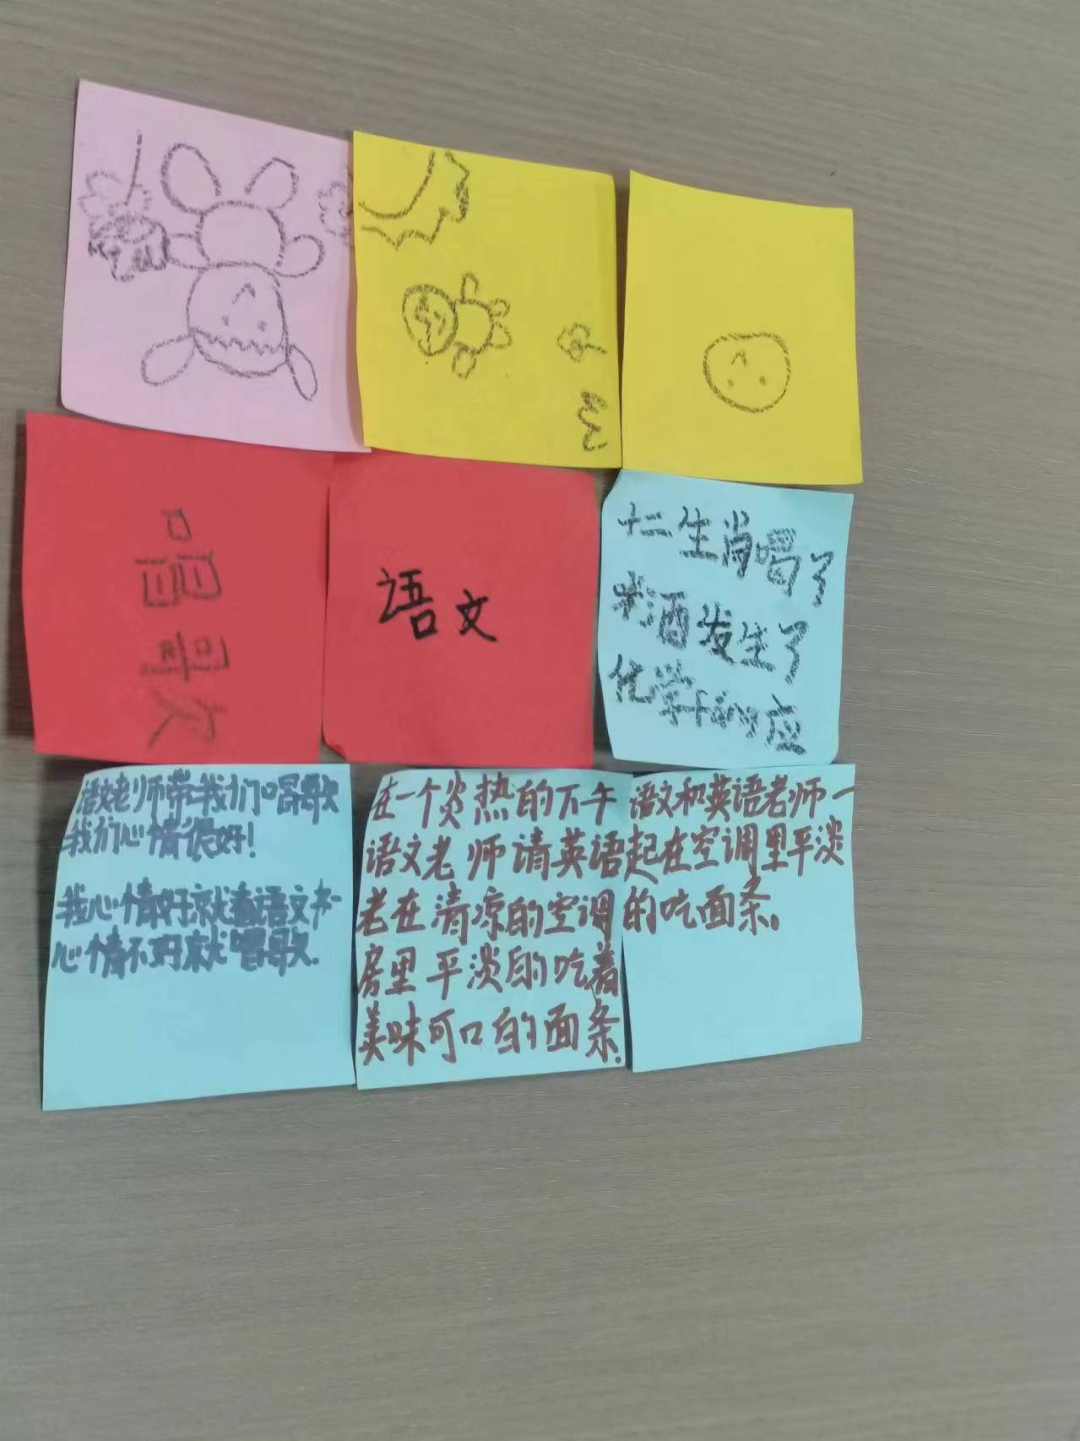 唱歌
语文
十二生肖喝了
米酒发生了
化学应
语文老师带我们唱歌
我们心情很好!
我心情好就看语文书
心情不好就唱歌.
在一个炎热的下午
语文老师请英语
老在清凉的空调
房里平淡的吃着
美味可口的面条.
语文和英语老师一
起在空调里平淡
的吃面条。